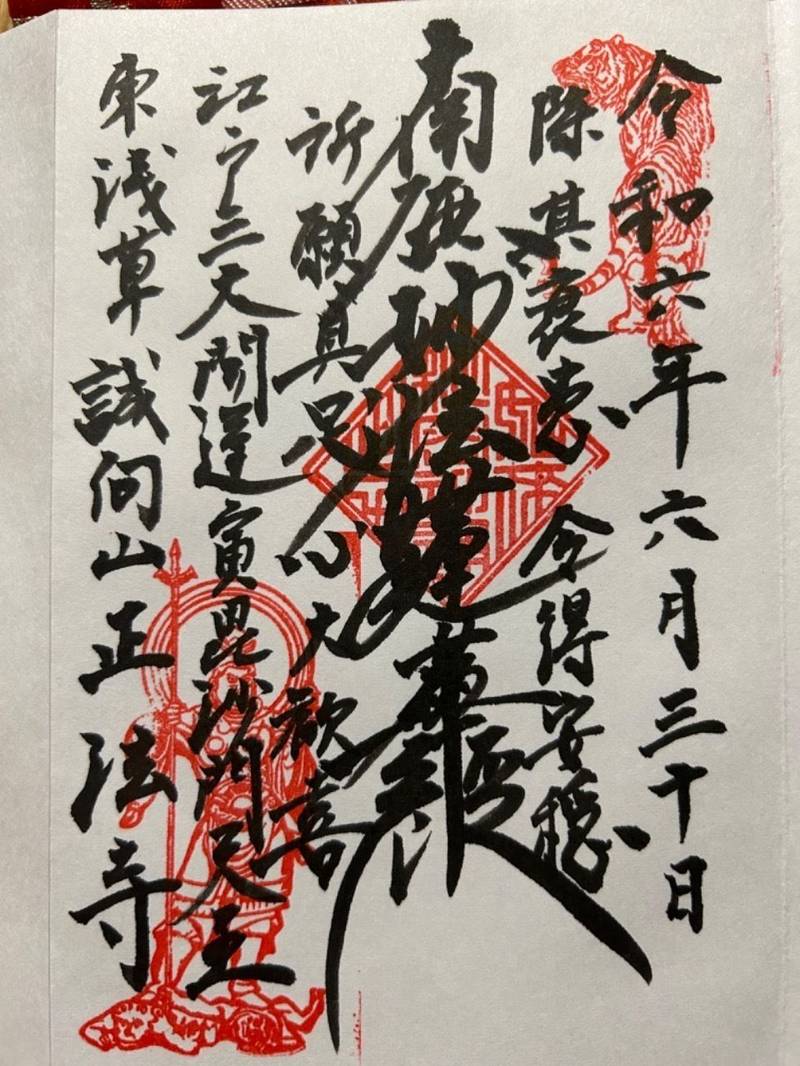 令和六年六月三十日
除其衰患 令得安穏
南無妙法蓮華経
所願具足 心大歓喜
江戸三大開運寅毘沙門天王
東浅草 誠向山 正法寺